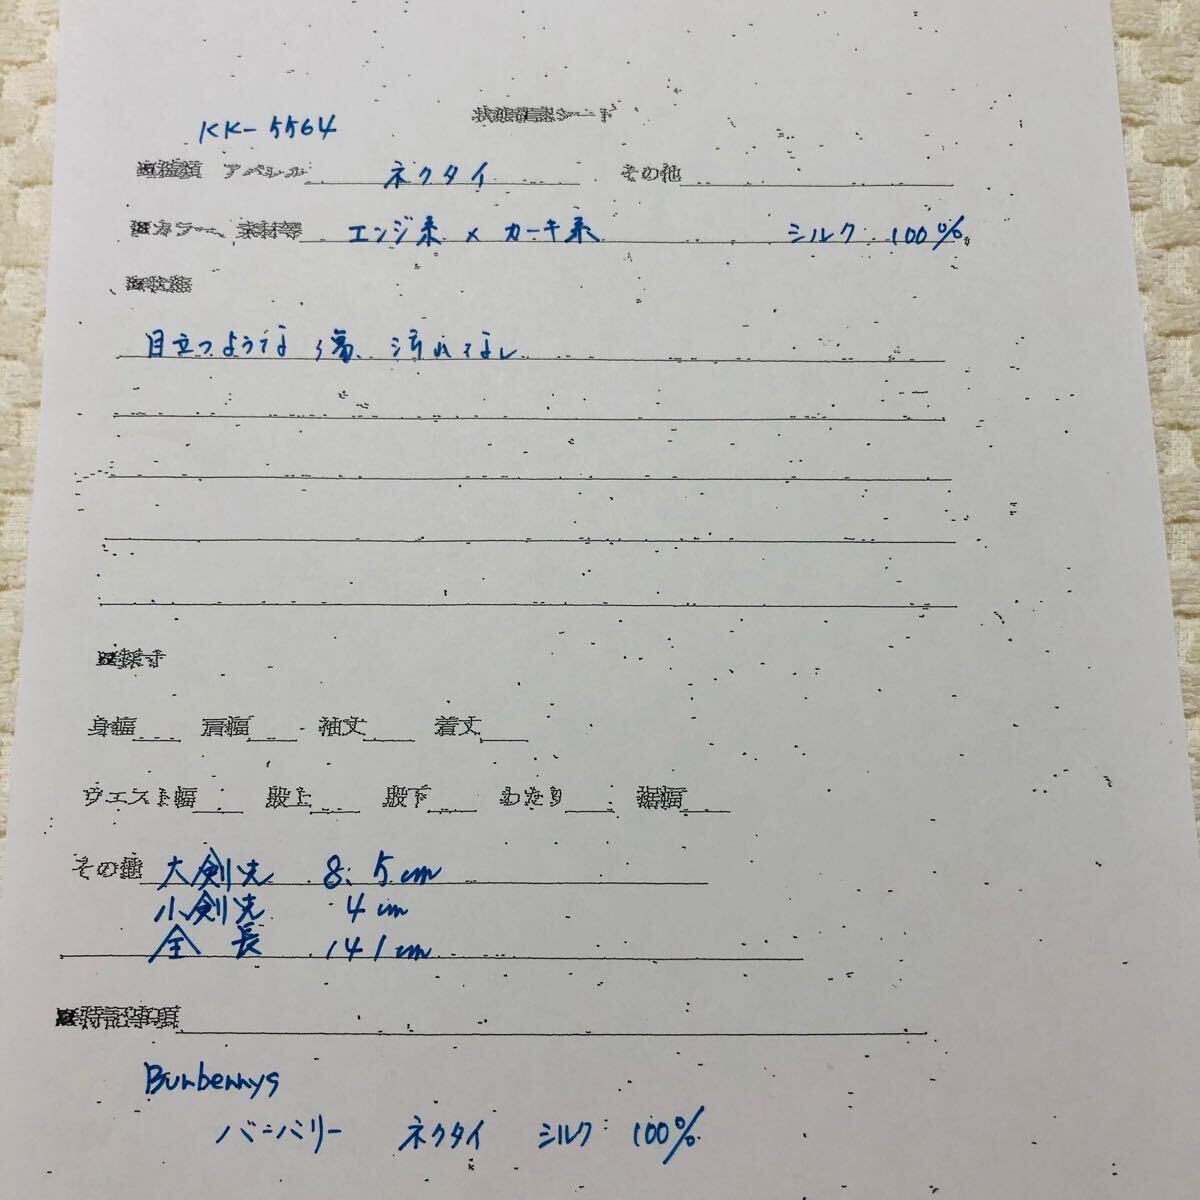 状態確認シート
KK-5564
■種類 アパレル ネクタイ その他
■カラー、素材等 エンジ系 × カーキ系 シルク 100%
■状態
目立つような傷、汚れなし
■採寸
身幅 肩幅 袖丈 着丈
ウエスト幅 股上 股下 わたり 裾幅
その他 大剣先 8.5cm
小剣先 4cm
全長 141cm
■特記事項
Burberrys
バーバリー ネクタイ シルク 100%